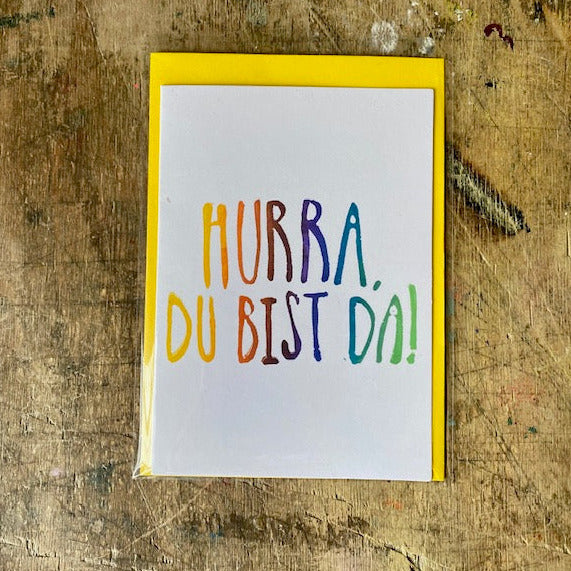 HURRA,
DU BIST DA!